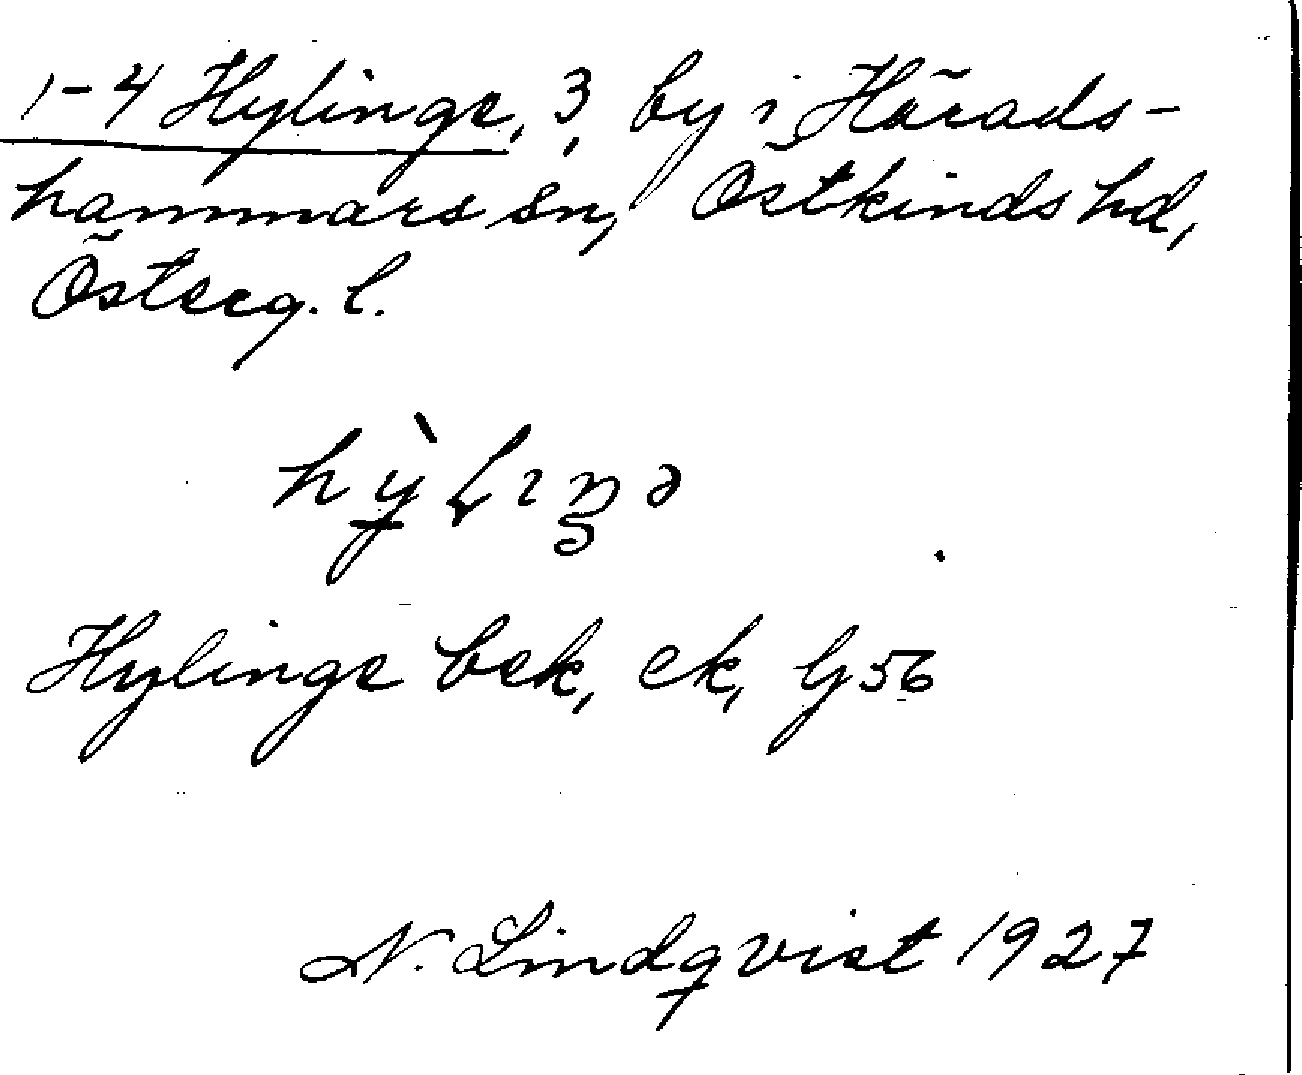 1-4 Hylinge, 3, by i Härads-
hammars sn, Östkinds hd,
Österg. l.
Hylinge bek, ek, Gj 56
N. Lindqvist 1927